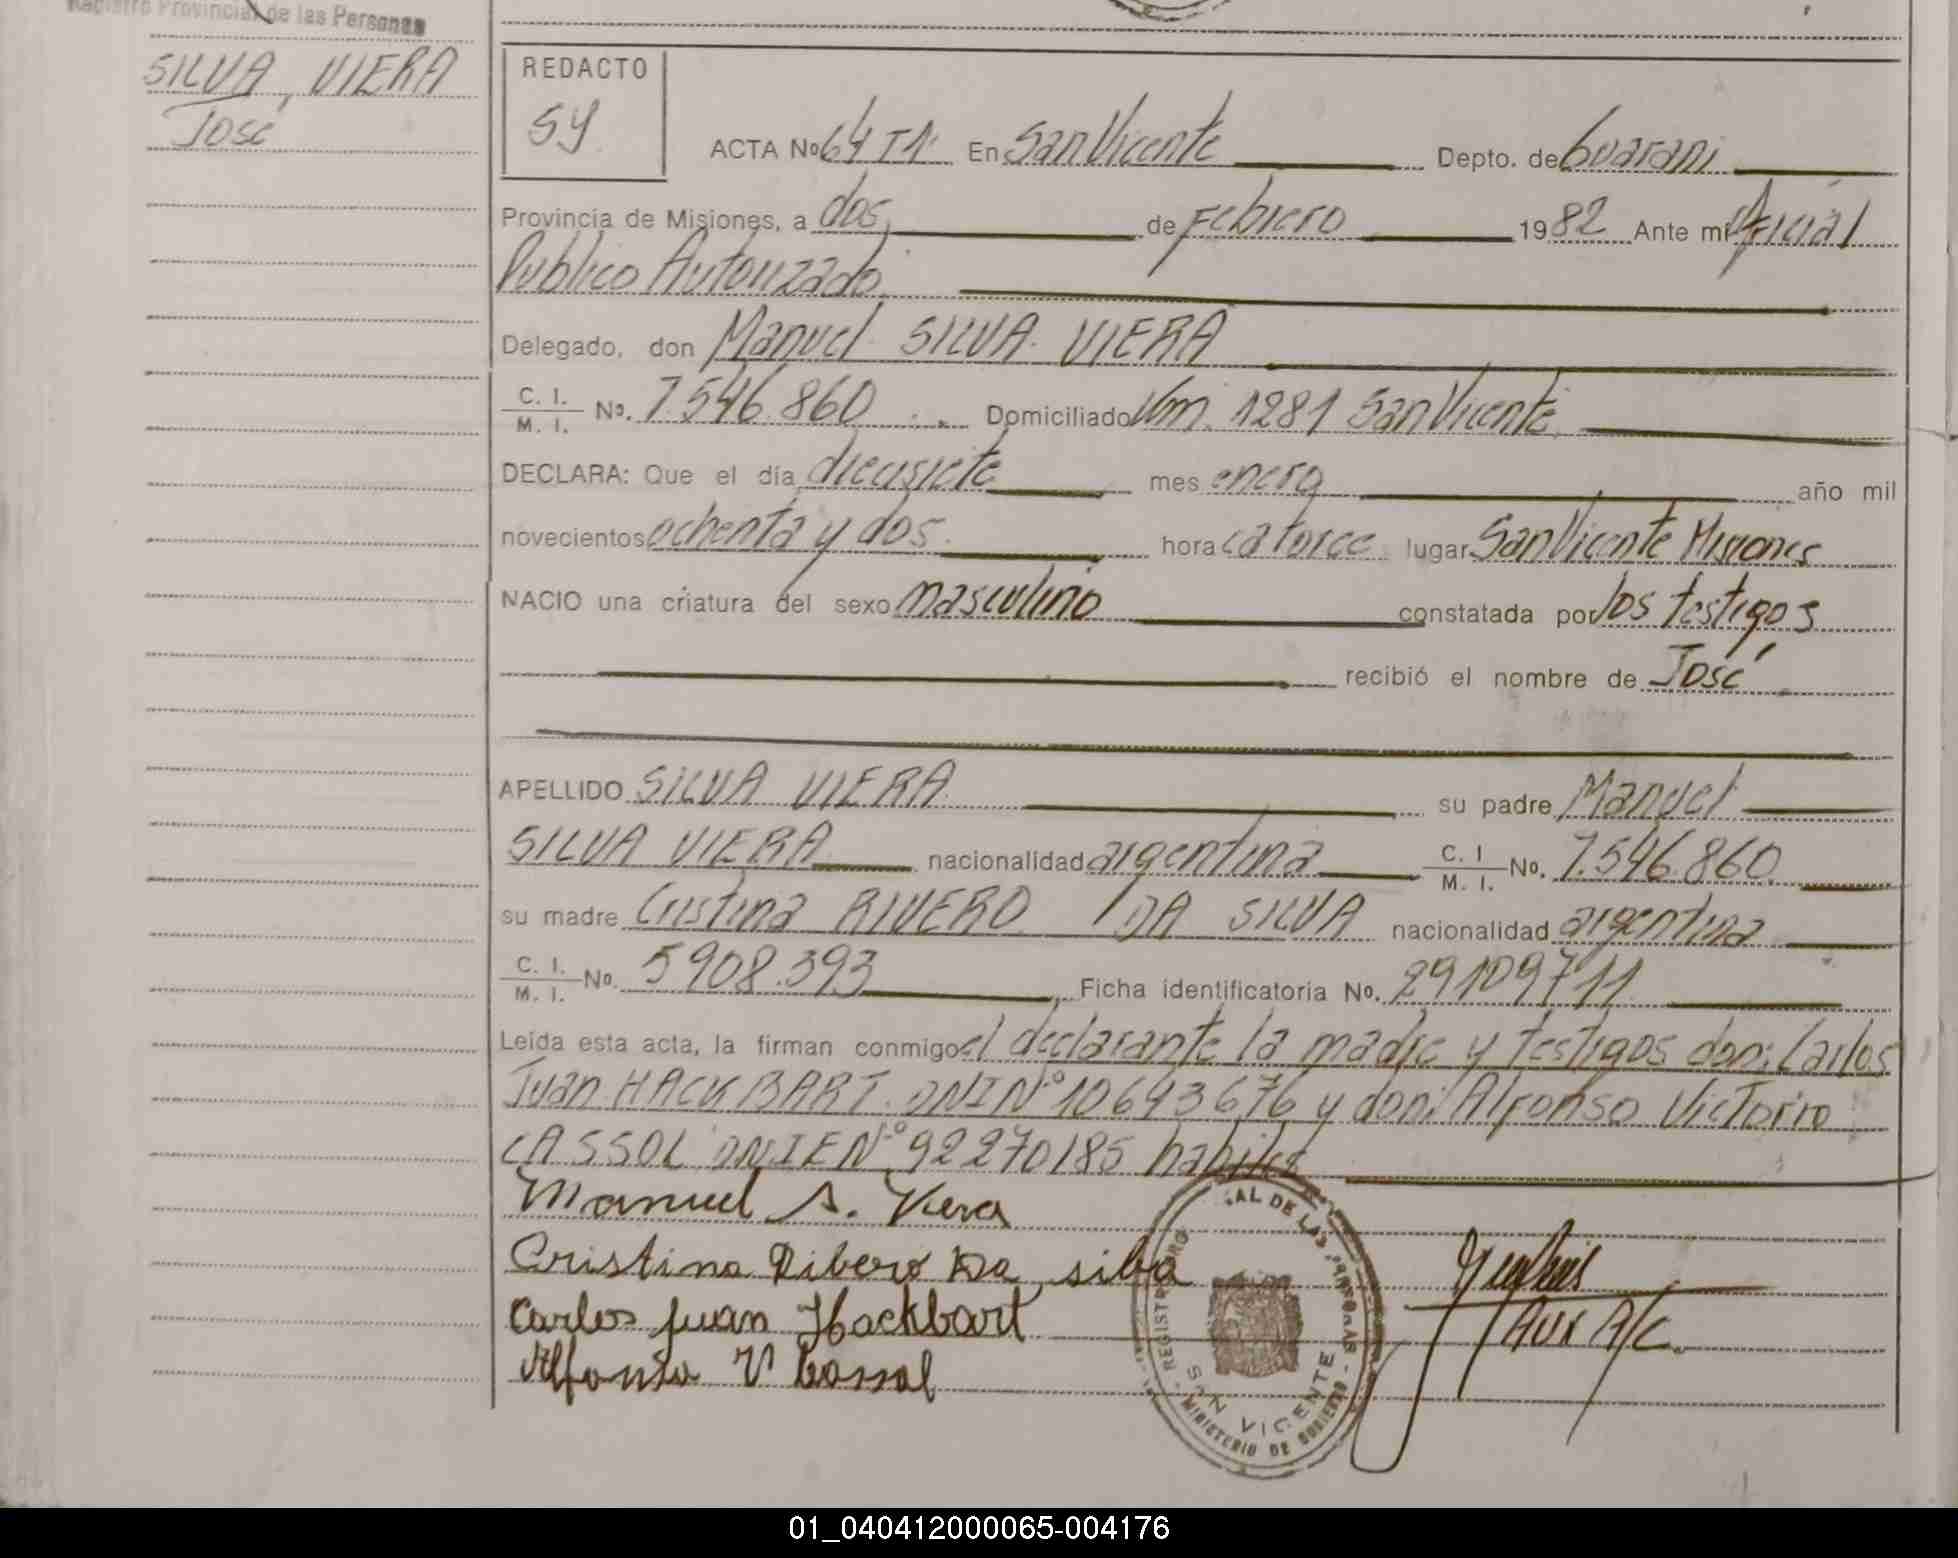 Registro Provincial de las Personas
SILVA, VIERA
José
REDACTO
SY
ACTA Nº 64 T1 En San Vicente Depto. de Guarani
Provincia de Misiones, a dos de Febrero 1982 Ante mi Oficial
Publico Autorizado
Delegado, don Manuel SILVA VIERA
C. I. / M. I. Nº. 7.546.860 Domiciliado Km. 1281 San Vicente
DECLARA: Que el día diecisiete mes enero año mil
novecientos ochenta y dos hora catorce lugar San Vicente Misiones
NACIO una criatura del sexo masculino constatada por los testigos
recibió el nombre de José
APELLIDO SILVA VIERA su padre Manuel
SILVA VIERA nacionalidad argentina C. I / M. I. No. 7.546.860
su madre Cristina RIVERO DA SILVA nacionalidad argentina
C. I. / M. I. No. 5908.393 Ficha identificatoria No. 29109711
Leída esta acta, la firman conmigo el declarante la madre y testigos don: Carlos
Juan HACKBART DNI Nº 10693676 y don: Alfonso Victorio
CASSOL DNIE Nº 92270185 habiles
Manuel S. Viera
Cristina Ribero Da silba
Carlos Juan Hackbart
Alfonso V Cassol
AUX A/C.
REGISTRO AL DE LAS PERSONAS
SAN VICENTE
MINISTERIO DE GOBIERNO
01_040412000065-004176